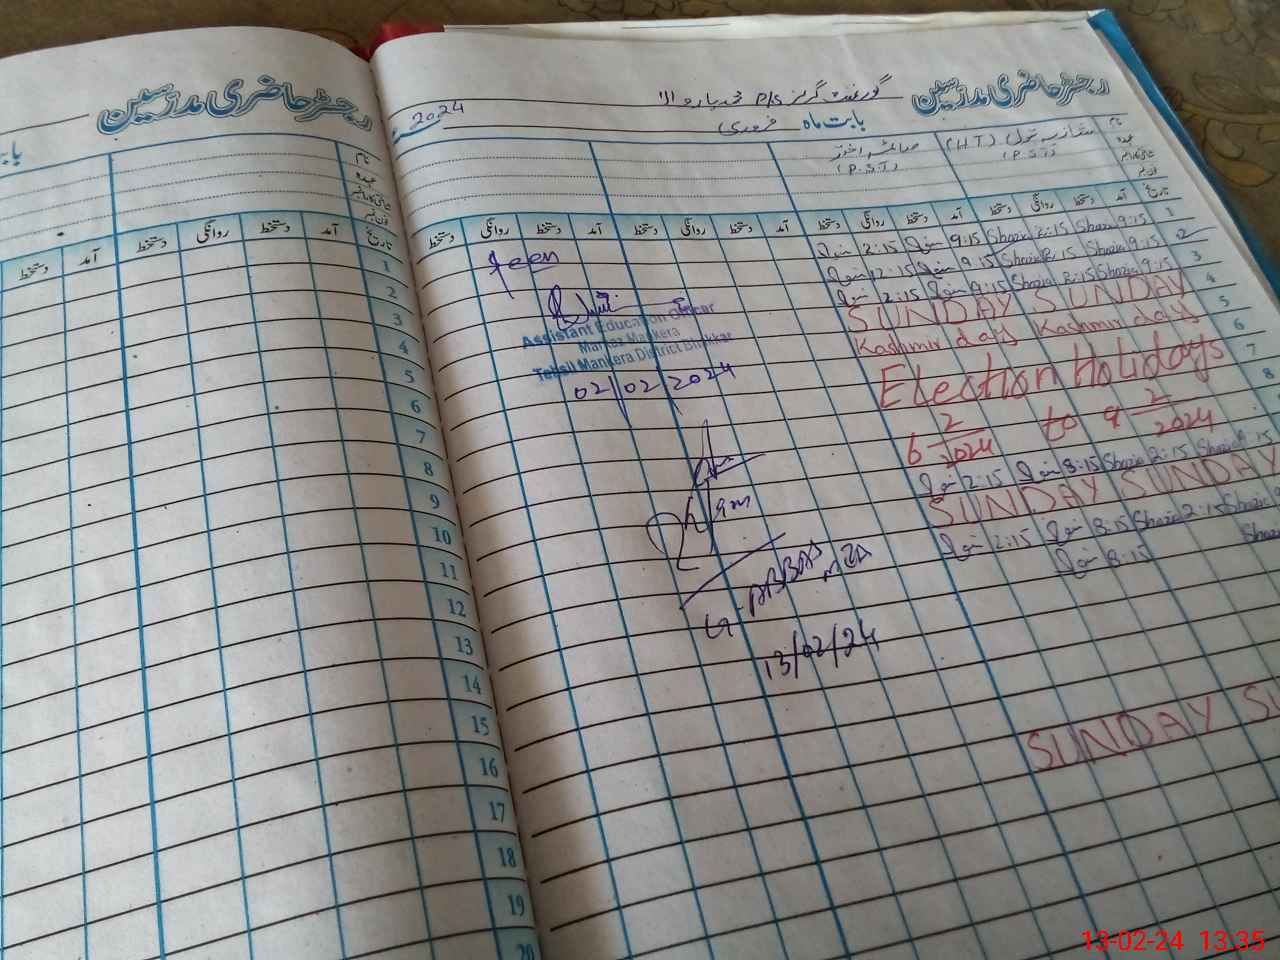 رجسٹر حاضری مدرسین
نام
عہدہ
تاریخ آمد دستخط روانگی دستخط آمد دستخط
1
2
3
4
5
6
7
8
9
10
11
12
13
14
15
16
17
18
19
20
رجسٹر حاضری مدرسین گورنمنٹ گرلز P/S محمد یاروالا
بابت ماہ فروری 2024
نام
عہدہ
(H T)
(P.S.T)
(P.S.T)
تاریخ آمد دستخط روانگی دستخط آمد دستخط روانگی دستخط آمد دستخط روانگی دستخط آمد دستخط روانگی دستخط
1 9:15 Shazia 2:15 Shazia 9:15 2:15
2 9:15 Shazia 2:15 Shazia 9:15 2:15
3 9:15 Shazia 2:15 Shazia 9:15 2:15
4 SUNDAY SUNDAY
5 Kashmir day Kashmir day
6 Election Holidays
7 6 2/2024 to 9 2/2024
8
2:15 8:15 Shazia 2:15 Shazia 8:15
SUNDAY SUNDAY
2:15 8:15 Shazia 2:15 Shazia
8:15 Shazia
SUNDAY SU
Seen
Assistant Education Officer
Markaz Mankera
Tehsil Mankera District Bhakkar
02/02/2024
G-ABBAS MEA
13/02/24
13-02-24 13:35